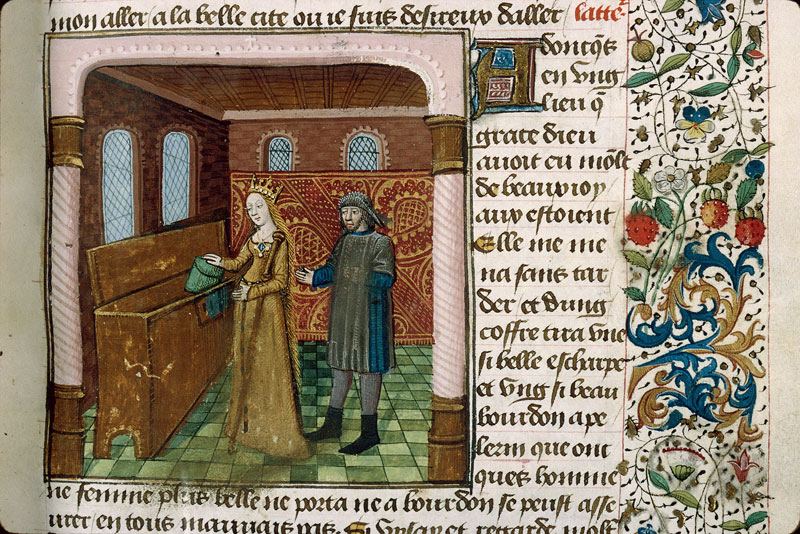 mon aller / a la belle cite ou ie fuis desireux daller latte
Adoncqs
en vng
lieu q
grace dieu
auoit eu mōlt
de beau vioy
aux estoient
Elle me me
na sans tar
der et dung
coffre tira vne
si belle escharpe
et vng si beau
bourdon a pe
lerin que onc
ques homme
ne femme plus belle ne porta ne a bourdon se peust asse
urer / en tous mauuais pas. Et regarde molt